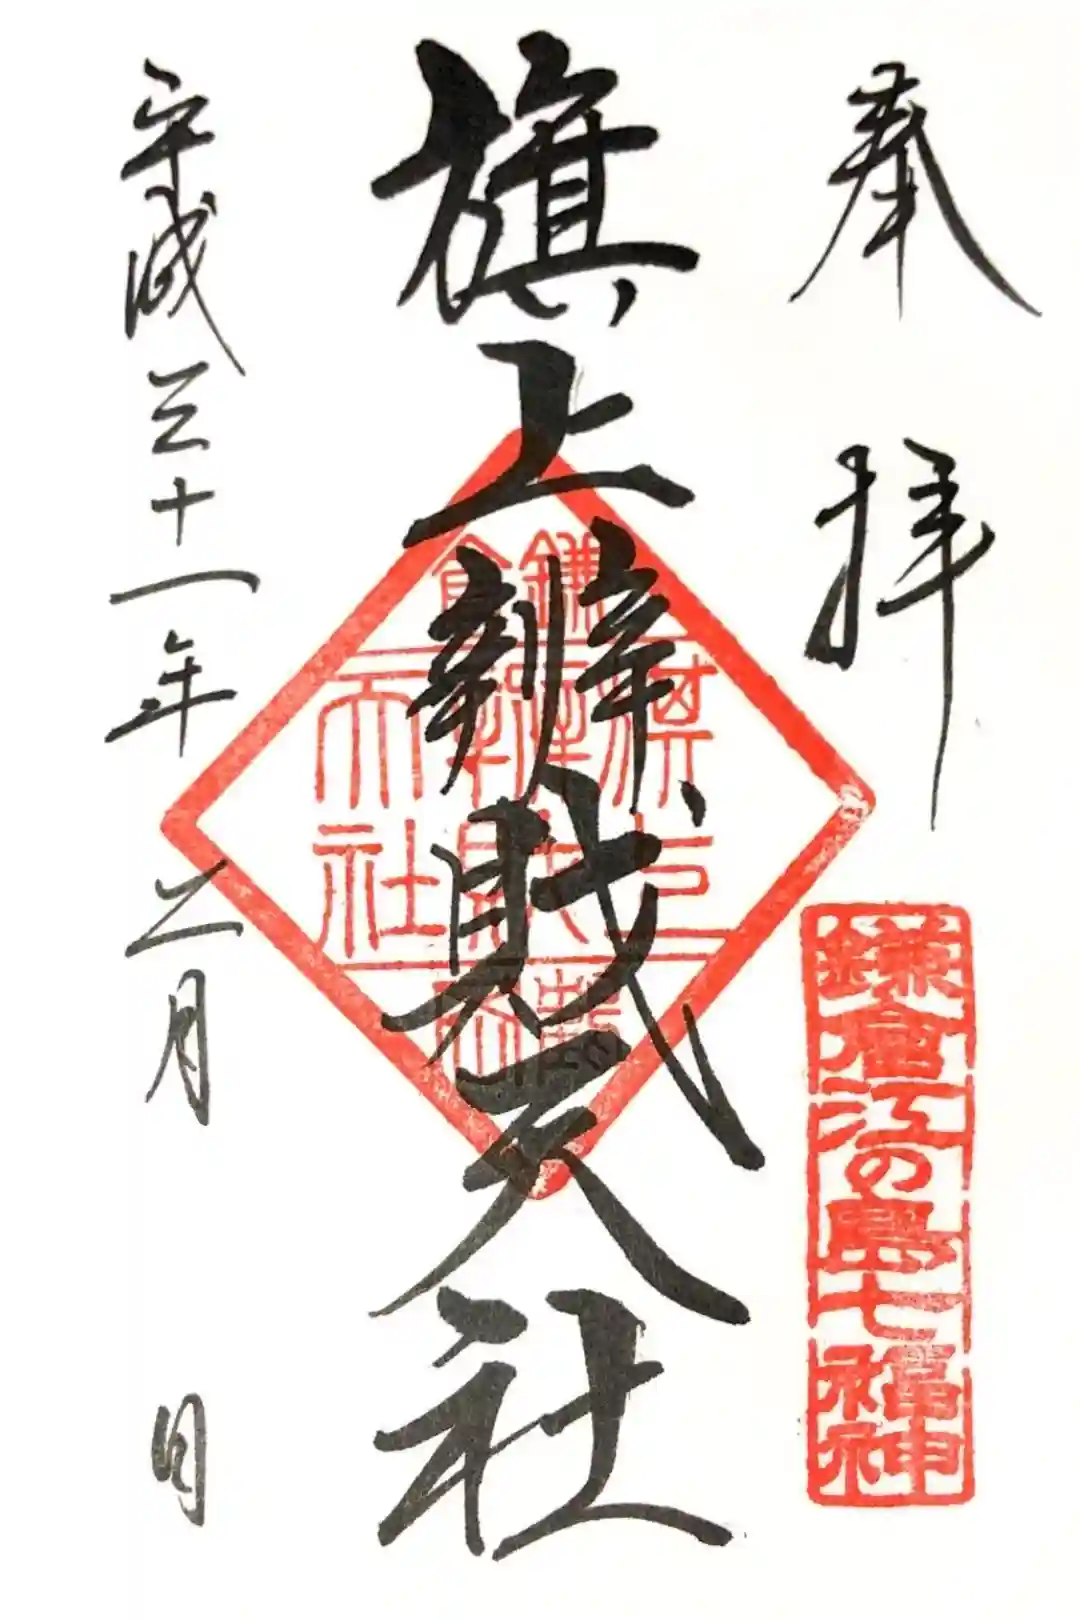 奉拝
鎌倉江の島七福神
旗上辨財天社
鎌倉
旗上
天社
平成三十一年二月 日